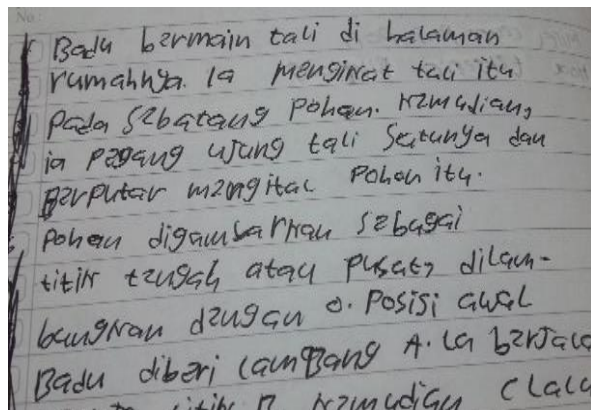 Badu bermain tali di halaman
rumahnya. Ia mengikat tali itu
pada sebatang pohon. Kemudian,
ia pegang ujung tali satunya dan
berputar mengitari pohon itu.
Pohon digambarkan sebagai
titik tengah atau pusat, dilam-
bangkan dengan O. Posisi awal
Badu diberi lambang A. Ia berjala
titik B kemudian C lalu